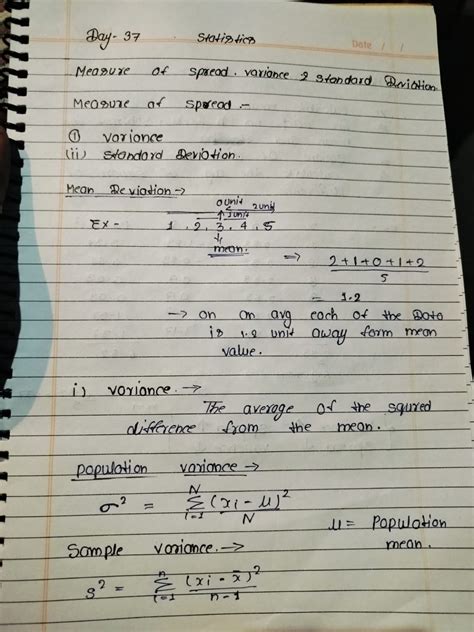 Day-37 Statistics
Date / /
Measure of spread. variance & standard Deviation
Measure of spread :-
(i) variance
(ii) standard Deviation.
Mean Deviation →
0unit
2unit
1unit
Ex - 1 . 2 . 3 . 4 . 5
mean.
⇒ 2+1+0+1+2 / 5
= 1.2
→ on an avg each of the Data
is 1.2 unit away form mean
value.
i) variance. →
The average of the squred
difference from the mean.
population variance →
σ² = N Σ i=1 (xi - μ)² / N
μ = Population
mean.
Sample variance. →
s² = n Σ i=1 (xi - x̄)² / n-1